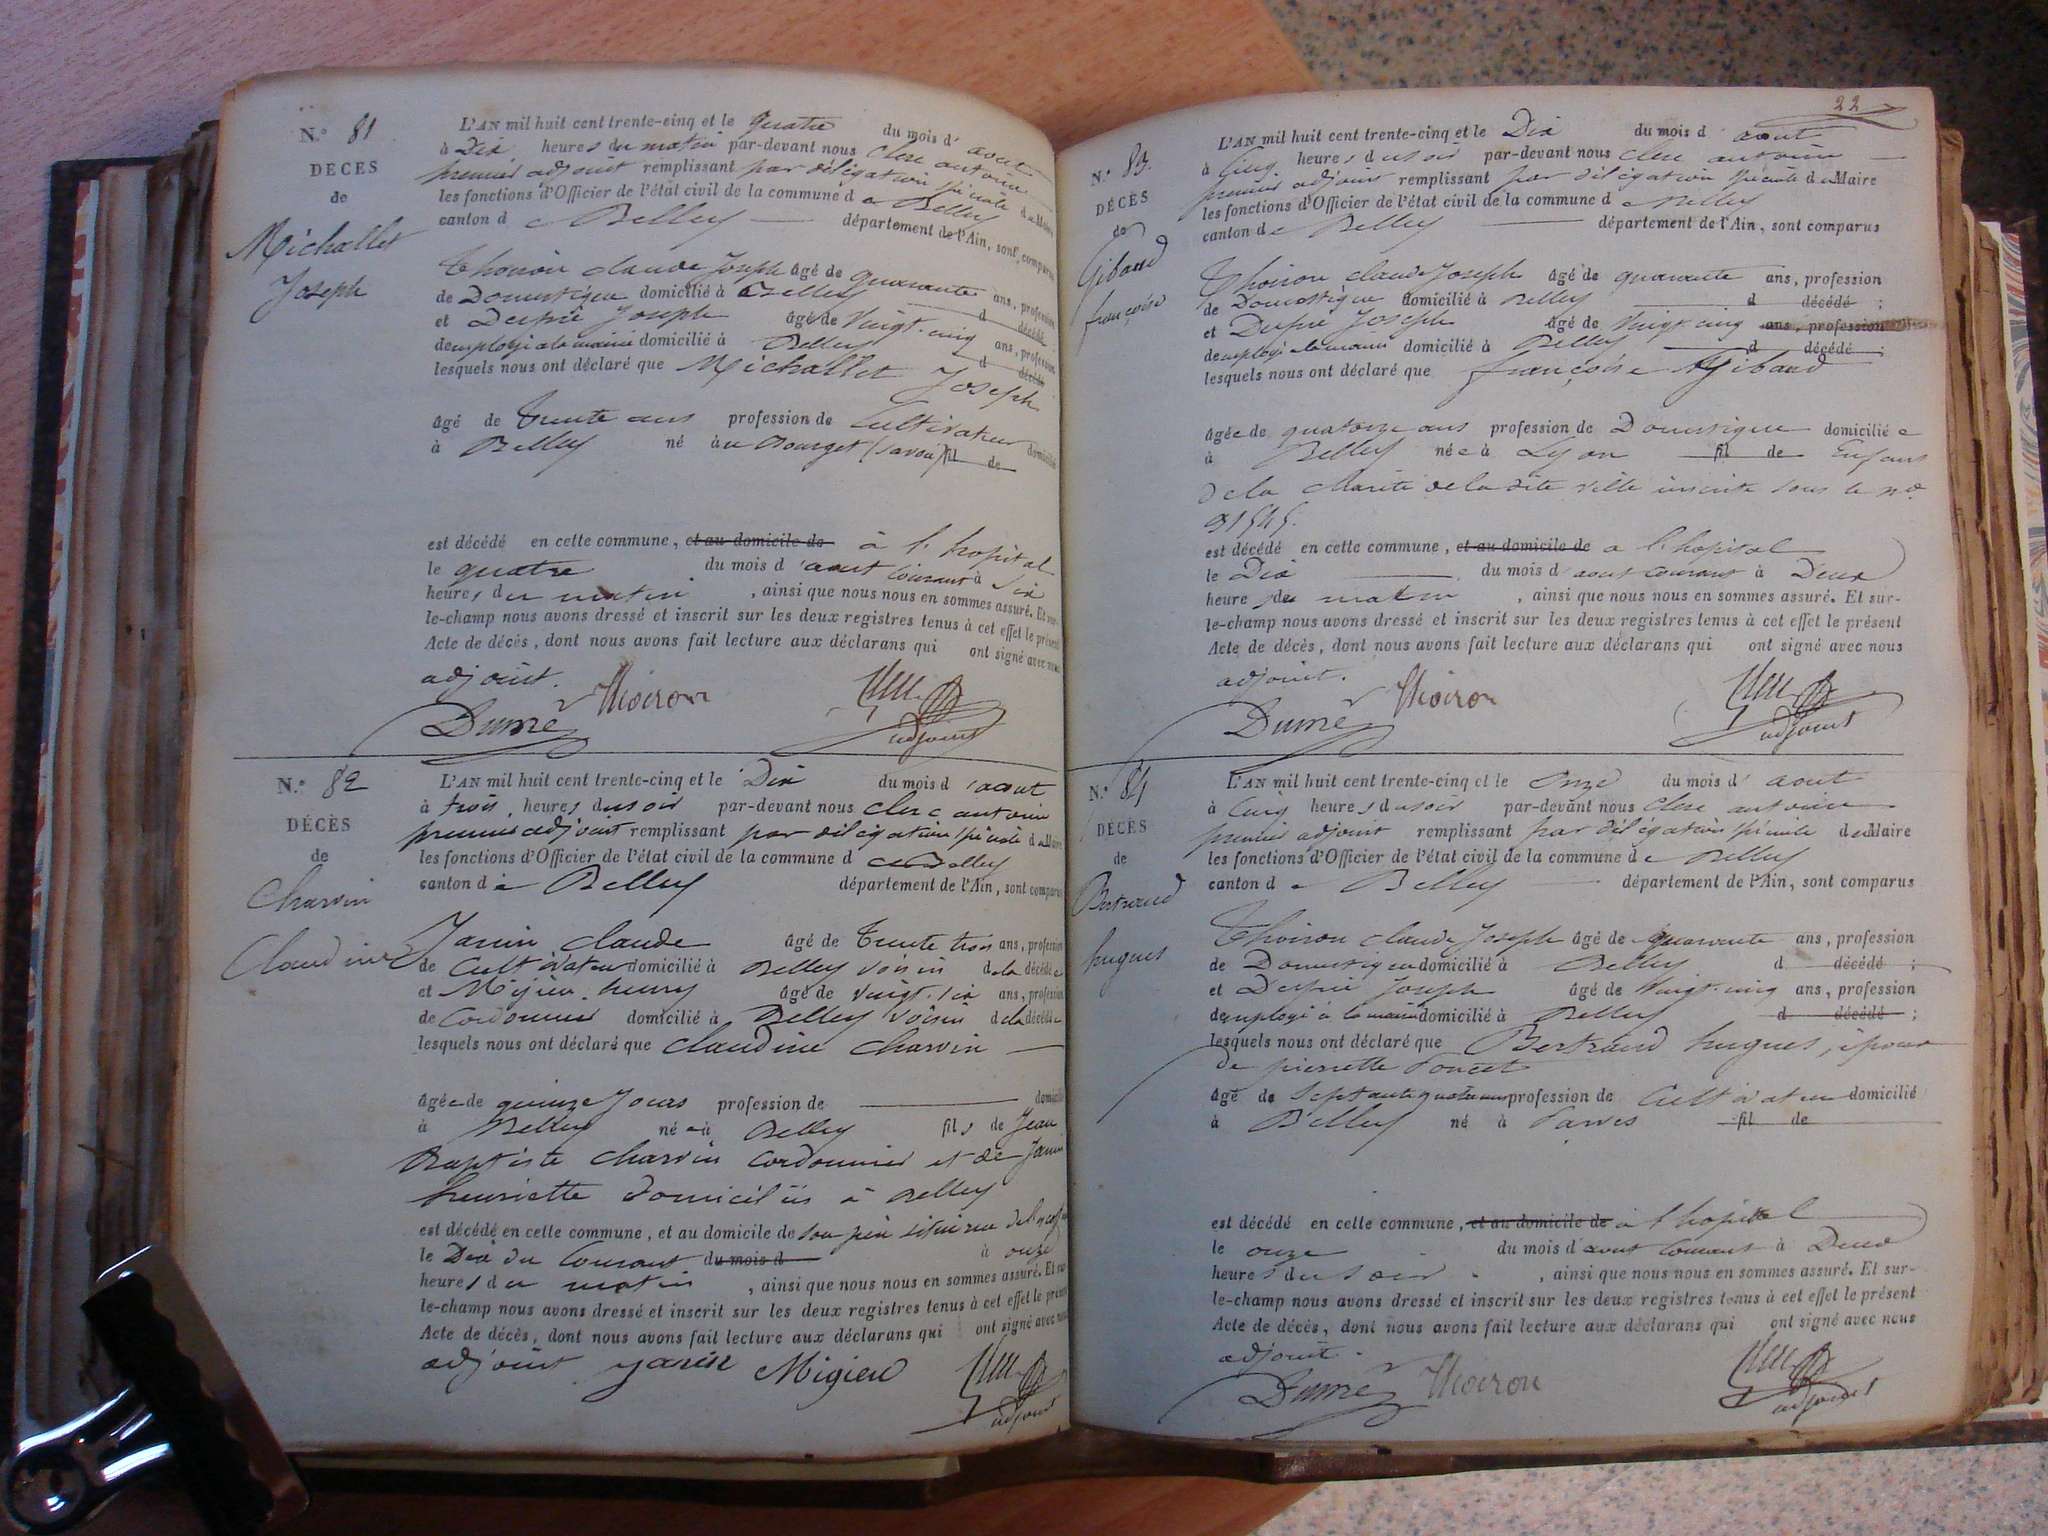 N.° 81
DÉCÈS
de
Michallet
Joseph
L'AN mil huit cent trente-cinq et le quatre du mois d'aout
à Dix heures du matin par-devant nous clerc antoine
premier adjoint remplissant par délégation spéciale du Maire
les fonctions d'Officier de l'état civil de la commune de Belley
canton de Belley département de l'Ain, sont comparus
Thoiron claude Joseph âgé de quarante ans, profession
de Domestique domicilié à Belley d décédé
et Dupré Joseph âgé de Vingt-cinq ans, profession
d employé a la mairie domicilié à Belley d décédé
lesquels nous ont déclaré que Michallet Joseph
âgé de trente ans profession de Cultivateur domicilié
à Belley né au Bourget (Savoie) fil de
est décédé en cette commune, et au domicile de à l'hopital
le quatre du mois d'aout Courant à Six
heures du matin, ainsi que nous nous en sommes assuré. Et sur-
le-champ nous avons dressé et inscrit sur les deux registres tenus à cet effet le présent
Acte de décès, dont nous avons fait lecture aux déclarans qui ont signé avec nous
adjoint.
Thoiron
adjoint
N.° 82
DÉCÈS
de
Charvin
Claudine
L'AN mil huit cent trente-cinq et le Dix du mois d'aout
à trois heures du soir par-devant nous clerc antoine
premier adjoint remplissant par délégation spéciale du Maire
les fonctions d'Officier de l'état civil de la commune de Belley
canton de Belley département de l'Ain, sont comparus
Janin claude âgé de Trente trois ans, profession
de Cultivateur domicilié à Belley voisin de la décédée
et Migieu henry âgé de vingt-six ans, profession
de Cordonnier domicilié à Belley voisin de la décédée
lesquels nous ont déclaré que Claudine Charvin
âgée de quinze Jours profession de domicilié
à Belley née à Belley fils de Jean
Baptiste Charvin Cordonnier et de Janin
henriette domiciliés à Belley
est décédé en cette commune, et au domicile de son père situé rue de
le Dix du Courant du mois d à onze
heures du matin, ainsi que nous nous en sommes assuré. Et sur-
le-champ nous avons dressé et inscrit sur les deux registres tenus à cet effet le présent
Acte de décès, dont nous avons fait lecture aux déclarans qui ont signé avec nous
adjoint Janin Migieu
adjoint
22
N.° 83.
DÉCÈS
de
Gibaud
françoise
L'AN mil huit cent trente-cinq et le Dix du mois d'aout
à Cinq heures du soir par-devant nous clerc antoine
premier adjoint remplissant par délégation spéciale du Maire
les fonctions d'Officier de l'état civil de la commune de Belley
canton de Belley département de l'Ain, sont comparus
Thoiron claude Joseph âgé de quarante ans, profession
de Domestique domicilié à Belley d décédé ;
et Dupré Joseph âgé de Vingt-cinq ans, profession
d employé a la mairie domicilié à Belley d décédé ;
lesquels nous ont déclaré que françoise Gibaud
âgée de quatorze ans profession de Domestique domiciliée
à Belley née à Lyon fil de Enfans
de la Charité de la dite ville inscrite sous le n.°
est décédé en cette commune, et au domicile de a l'hopital
le Dix du mois d'aout courant à Deux
heures du matin, ainsi que nous nous en sommes assuré. Et sur-
le-champ nous avons dressé et inscrit sur les deux registres tenus à cet effet le présent
Acte de décès, dont nous avons fait lecture aux déclarans qui ont signé avec nous
adjoint.
Thoiron
adjoint
N.° 84
DÉCÈS
de
Bertrand
hugues
L'AN mil huit cent trente-cinq et le Onze du mois d'aout
à Cinq heures du soir par-devant nous clerc antoine
premier adjoint remplissant par délégation spéciale du Maire
les fonctions d'Officier de l'état civil de la commune de Belley
canton de Belley département de l'Ain, sont comparus
Thoiron claude Joseph âgé de quarante ans, profession
de Domestique domicilié à Belley d décédé ;
et Dupré Joseph âgé de Vingt-cinq ans, profession
d employé à la mairie domicilié à Belley d décédé ;
lesquels nous ont déclaré que Bertrand hugues, époux
de pierrette
âgé de Septante quatre ans profession de Cultivateur domicilié
à Belley né à Parves fil de
est décédé en cette commune, et au domicile de à l'hopital
le onze du mois d'aout Courant à Deux
heures du soir, ainsi que nous nous en sommes assuré. Et sur-
le-champ nous avons dressé et inscrit sur les deux registres tenus à cet effet le présent
Acte de décès, dont nous avons fait lecture aux déclarans qui ont signé avec nous
adjoint.
Thoiron
adjoint